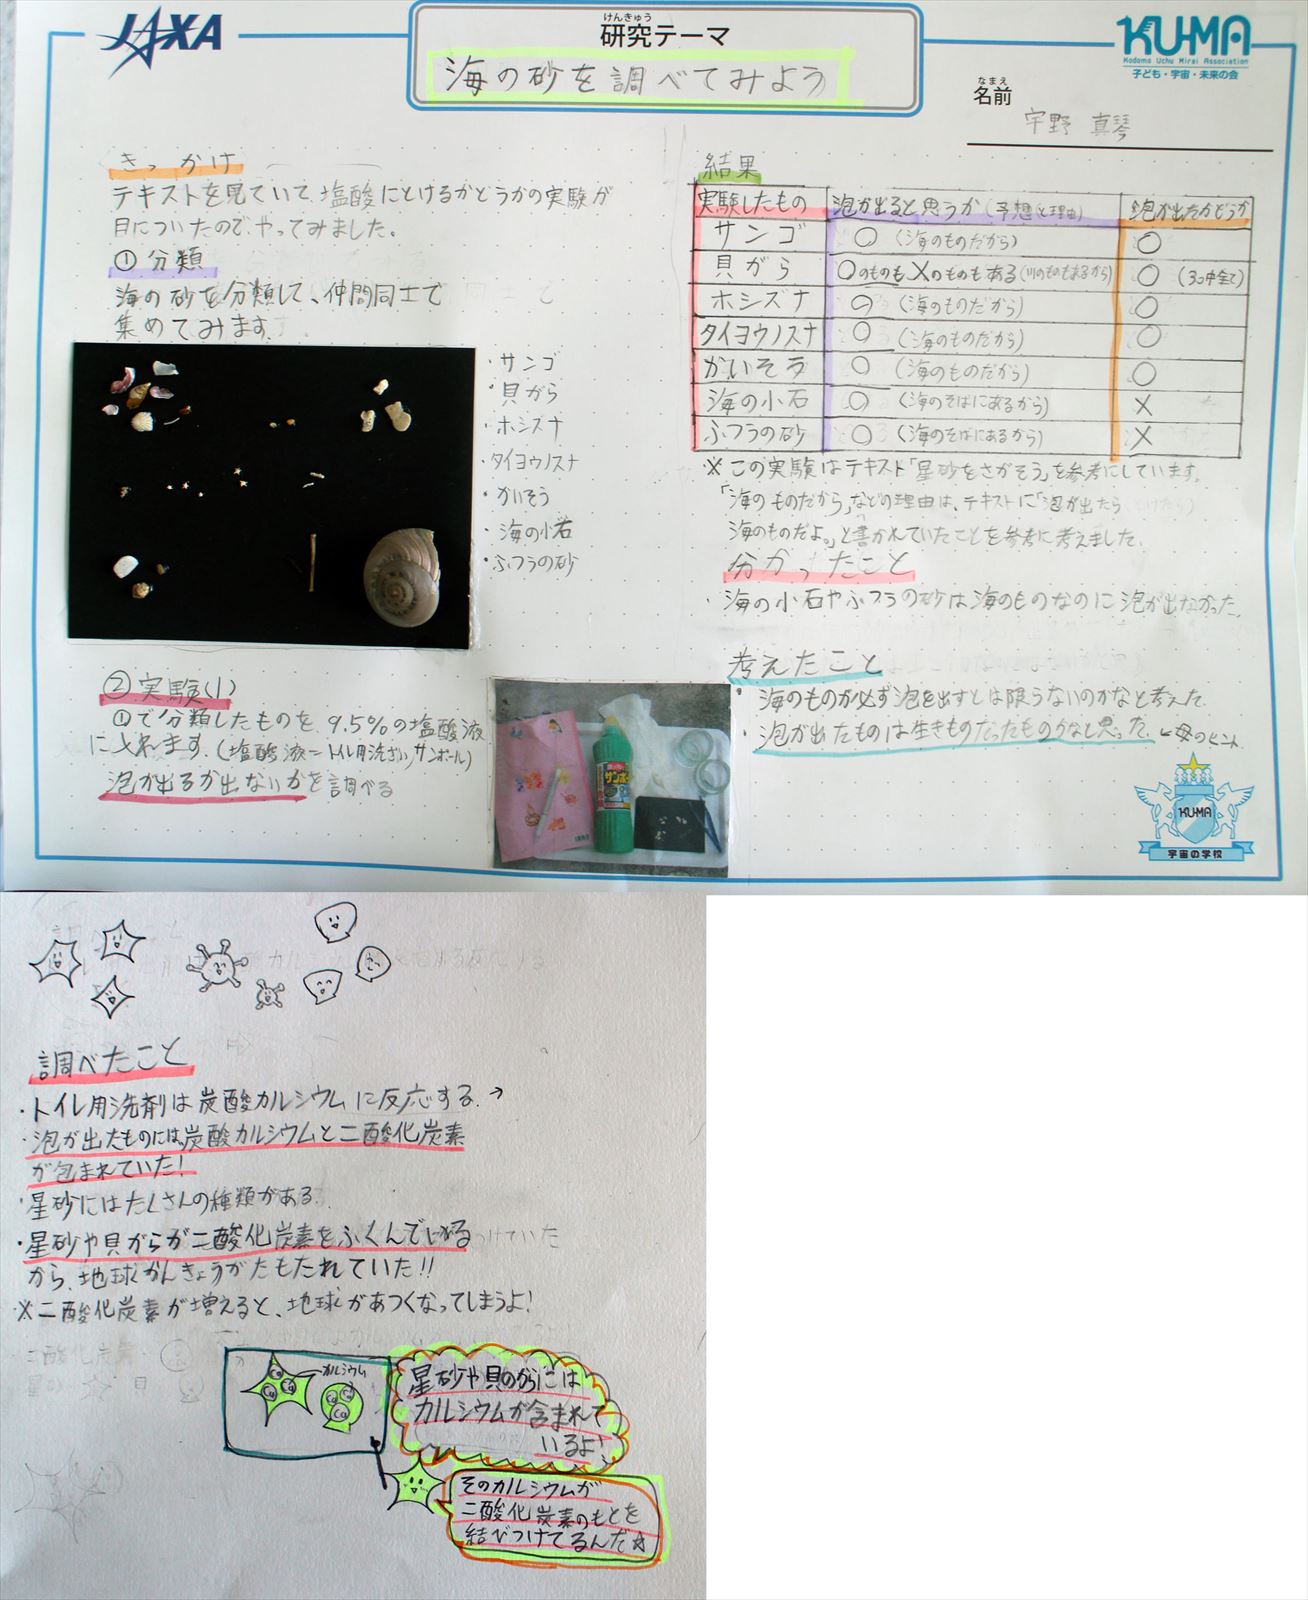 JAXA
けんきゅう
研究テーマ
海の砂を調べてみよう
KU-MA
Kodomo Uchu Mirai Association
子ども・宇宙・未来の会
なまえ
名前
宇野 真琴
きっかけ
テキストを見ていて塩酸にとけるかどうかの実験が
目についたので、やってみました。
①分類
海の砂を分類して、仲間同士で
集めてみます。
・サンゴ
・貝がら
・ホシズナ
・タイヨウノスナ
・かいそう
・海の小石
・ふつうの砂
②実験(1)
①で分類したものを、9.5%の塩酸液
に入れます。(塩酸液=トイレ用洗ざい,サンポール)
泡が出るか出ないかを調べる
サンポール
結果
実験したもの 泡が出ると思うか(予想と理由) 泡が出たかどうか
サンゴ ○(海のものだから) ○
貝がら ○のものも×のものもある(川のものもあるから) ○(3コ中全て)
ホシズナ ○(海のものだから) ○
タイヨウノスナ ○(海のものだから) ○
かいそう ○(海のものだから) ○
海の小石 ○(海のそばにあるから) ×
ふつうの砂 ○(海のそばにあるから) ×
※この実験はテキスト「星砂をさがそう」を参考にしています。
「海のものだから」などの理由は、テキストに「泡が出たら
海のものだよ。」と書かれていたことを参考に考えました。
分かったこと
・海の小石やふつうの砂は海のものなのに泡が出なかった。
考えたこと
・海のものが必ず泡を出すとは限らないのかなと考えた。
・泡が出たものは生きものだったものかなと思った。←母のヒント
KU-MA
宇宙の学校
調べたこと
・トイレ用洗剤は炭酸カルシウムに反応する。→
・泡が出たものには、炭酸カルシウムと二酸化炭素
が包まれていた!
・星砂にはたくさんの種類がある。
・星砂や貝がらが二酸化炭素をふくんでいる
から、地球かんきょうがたもたれていた!!
※二酸化炭素が増えると、地球があつくなってしまうよ!
カルシウム
Ca Ca Ca
Ca Ca Ca
星砂や貝のからには
カルシウムが含まれて
いるよ!
そのカルシウムが
二酸化炭素のもとを
結びつけてるんだ☆